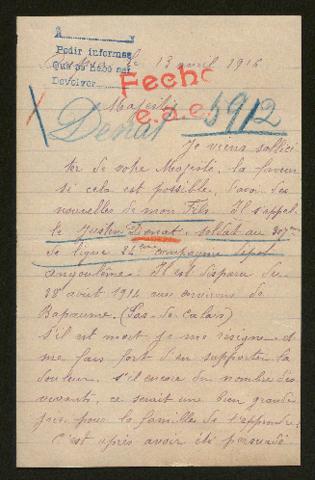 A
Pedir informes
Que se debe ser
Devolver
le 13 avril 1916
Fecho
e.a.e.
5912
Denat
Majesté
Je viens sollici
ter de votre Majesté, la faveur
si cela est possible, d'avoir des
nouvelles de mon Fils. Il s'appel
le Justin Denat, soldat au 307ème
de ligne 24ème compagnie dépot
angoulême. Il est disparu du
28 août 1914 aux environs de
Bapaume. (Pas-de Calais)
s'il est mort je me résigne et
me fais fort d'en supporter la
douleur, s'il encore du nombre des
vivants, ce serait une bien grande
joie pour la famille de l'apprendre.
C'est après avoir été persuadé